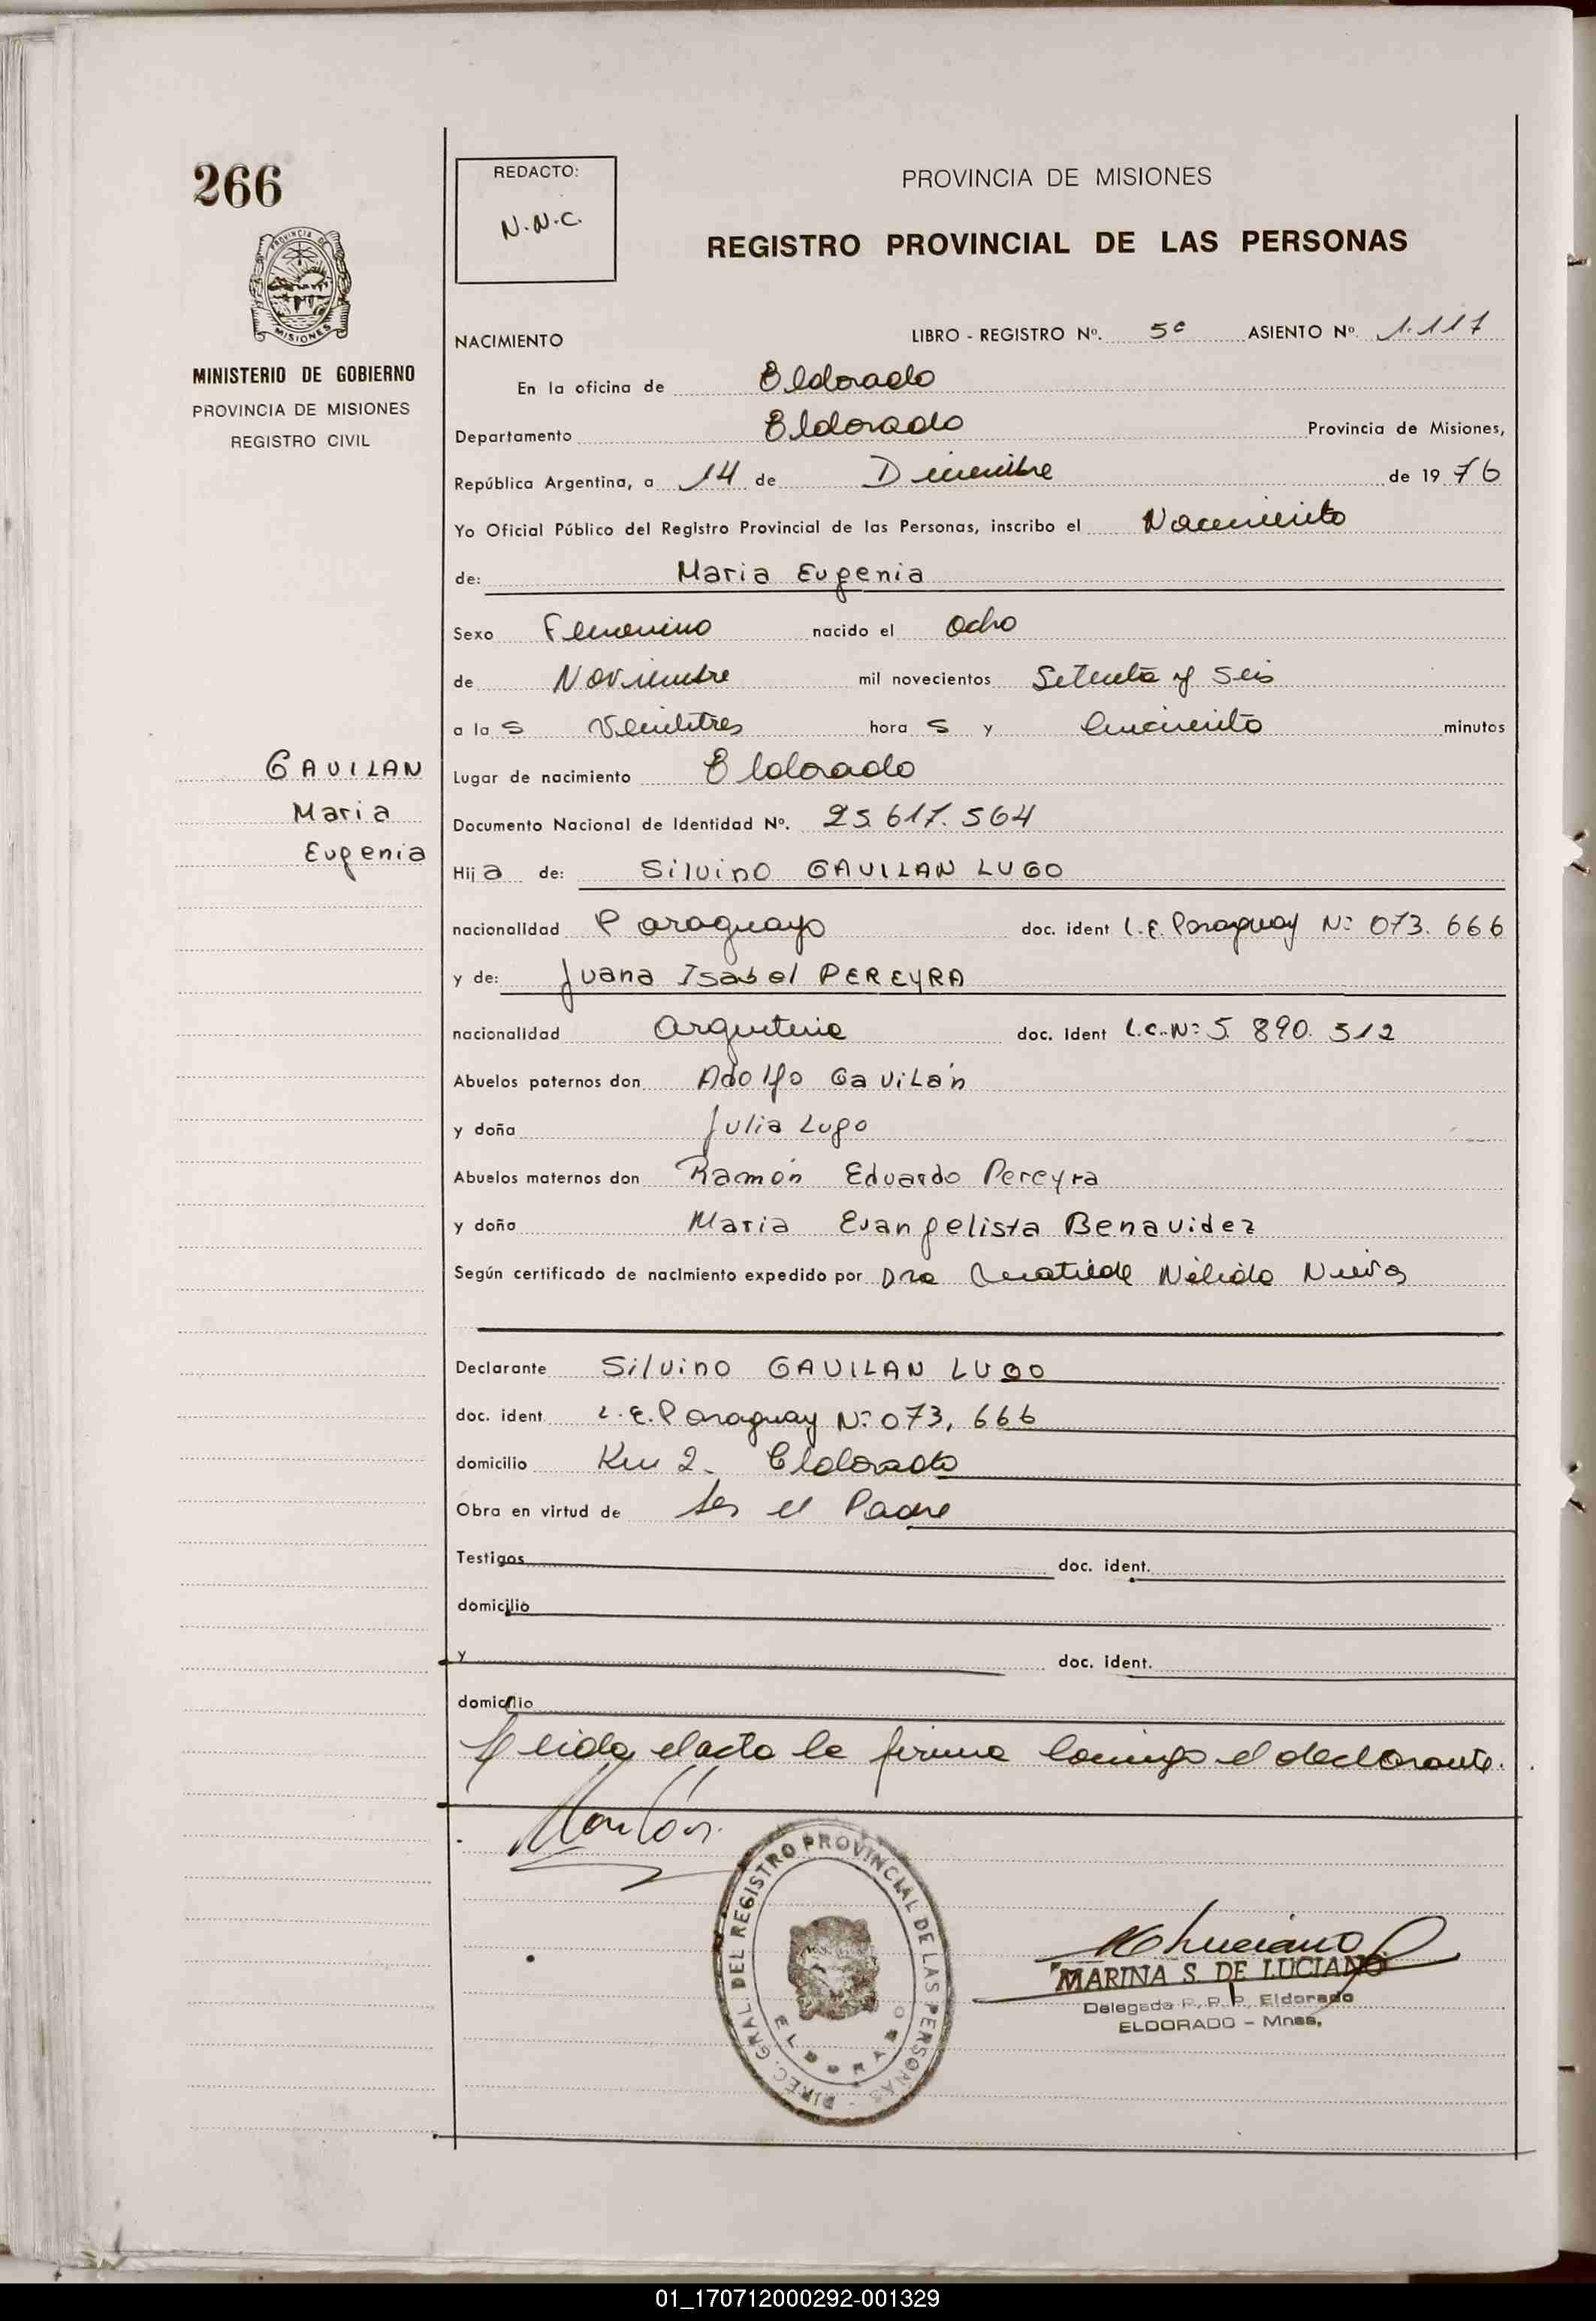 266
REDACTO:
N.N.C.
PROVINCIA DE MISIONES
REGISTRO PROVINCIAL DE LAS PERSONAS
MINISTERIO DE GOBIERNO
PROVINCIA DE MISIONES
REGISTRO CIVIL
NACIMIENTO LIBRO - REGISTRO Nº. 5º ASIENTO Nº. 1.117
En la oficina de Eldorado
Departamento Eldorado Provincia de Misiones,
República Argentina, a 14 de Diciembre de 1976
Yo Oficial Público del Registro Provincial de las Personas, inscribo el Nacimiento
de: Maria Eugenia
Sexo Femenino nacido el Ocho
de Noviembre mil novecientos Setenta y Seis
a las Veintitres horas y Cincuenta minutos
GAVILAN
Maria
Eugenia
Lugar de nacimiento Eldorado
Documento Nacional de Identidad Nº. 25.617.564
Hija de: Silvino GAVILAN LUGO
nacionalidad Paraguayo doc. ident L.E. Paraguay Nº 073.666
y de: Juana Isabel PEREYRA
nacionalidad Argentina doc. ident L.C. Nº 5.890.512
Abuelos paternos don Adolfo Gavilán
y doña Julia Lugo
Abuelos maternos don Ramón Eduardo Pereyra
y doña Maria Evangelista Benavidez
Según certificado de nacimiento expedido por Dra Matilde Nélida
Declarante Silvino GAVILAN LUGO
doc. ident L.E. Paraguay Nº 073,666
domicilio Km 2. Eldorado
Obra en virtud de Ser el Padre
Testigos doc. ident.
domicilio
y doc. ident.
domicilio
leida el acta la firma conmigo el declarante.
DIREC. GRAL. DEL REGISTRO PROVINCIAL DE LAS PERSONAS
ELDORADO
MARINA S. DE LUCIANO
Delegada R. P. P. Eldorado
ELDORADO - Mnes.
01_170712000292-001329